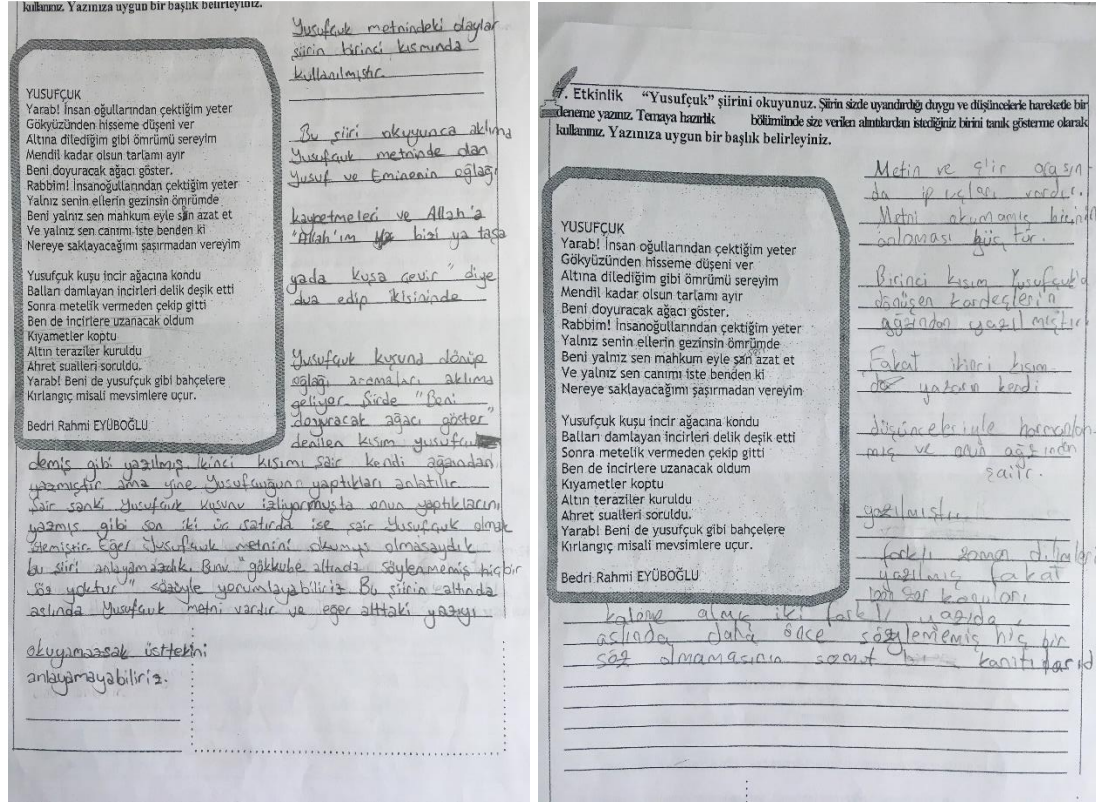 kullanınız. Yazınıza uygun bir başlık belirleyiniz.
YUSUFÇUK
Yarab! İnsan oğullarından çektiğim yeter
Gökyüzünden hisseme düşeni ver
Altına dilediğim gibi ömrümü sereyim
Mendil kadar olsun tarlamı ayır
Beni doyuracak ağacı göster.
Rabbim! İnsanoğullarından çektiğim yeter
Yalnız senin ellerin gezinsin ömrümde
Beni yalnız sen mahkum eyle sen azat et
Ve yalnız sen canımı iste benden ki
Nereye saklayacağımı şaşırmadan vereyim
Yusufçuk kuşu incir ağacına kondu
Balları damlayan incirleri delik deşik etti
Sonra metelik vermeden çekip gitti
Ben de incirlere uzanacak oldum
Kıyametler koptu
Altın teraziler kuruldu
Ahret sualleri soruldu.
Yarab! Beni de yusufçuk gibi bahçelere
Kırlangıç misali mevsimlere uçur.
Bedri Rahmi EYÜBOĞLU
Yusufçuk metnindeki olaylar
şiirin birinci kısmında
kullanılmıştır.
Bu şiiri okuyunca aklıma
Yusufçuk metninde olan
Yusuf ve Eminenin oğlağı
kaybetmeleri ve Allah'a
"Allah'ım bizi ya taşa
yada kuşa çevir" diye
dua edip ikisininde
Yusufçuk kuşuna dönüp
oğlağı aramaları aklıma
geliyor. Şirde "Beni
doyuracak ağacı göster"
denilen kısım yusufçuk
demiş gibi yazılmış ikinci kısımı şair kendi ağzından
yazmıştır ama yine Yusufçuğun yaptıkları anlatılır
Şair sanki Yusufçuk kuşunu izliyormuşta onun yaptıklarını
yazmış gibi son iki üç satırda ise şair Yusufçuk olmak
istemiştir. Eğer Yusufçuk metnini okumuş olmasaydık
bu şiiri anlayamazdık. Bunu "gökkube altında söylenmemiş hiçbir
söz yoktur" sözüyle yorumlayabiliriz. Bu şiirin altında
aslında Yusufçuk metni vardır ve eğer alttaki yazıyı
okuyamazsak üsttekini
anlayamayabiliriz.
7. Etkinlik "Yusufçuk" şiirini okuyunuz. Şiirin sizde uyandırdığı duygu ve düşüncelerle hareketle bir
deneme yazınız. Temaya hazırlık bölümünde size verilen alıntılardan istediğiniz birini tanık gösterme olarak
kullanınız. Yazınıza uygun bir başlık belirleyiniz.
YUSUFÇUK
Yarab! İnsan oğullarından çektiğim yeter
Gökyüzünden hisseme düşeni ver
Altına dilediğim gibi ömrümü sereyim
Mendil kadar olsun tarlamı ayır
Beni doyuracak ağacı göster.
Rabbim! İnsanoğullarından çektiğim yeter
Yalnız senin ellerin gezinsin ömrümde
Beni yalnız sen mahkum eyle sen azat et
Ve yalnız sen canımı iste benden ki
Nereye saklayacağımı şaşırmadan vereyim
Yusufçuk kuşu incir ağacına kondu
Balları damlayan incirleri delik deşik etti
Sonra metelik vermeden çekip gitti
Ben de incirlere uzanacak oldum
Kıyametler koptu
Altın teraziler kuruldu
Ahret sualleri soruldu.
Yarab! Beni de yusufçuk gibi bahçelere
Kırlangıç misali mevsimlere uçur.
Bedri Rahmi EYÜBOĞLU
Metin ve şiir arasın-
da ip uçları vardır.
Metni okumamış birinin
anlaması güçtür.
Birinci kısım Yusufçuk'a
dönüşen kardeşlerin
ağzından yazılmıştır.
Fakat ikinci kısım
yazarın kendi
düşünceleriyle harmanlan-
mış ve onun ağzından
şair.
yazılmıştır.
farklı zaman dilimleri
yazılmış fakat
konuları
kaleme almış iki farklı yazıda,
aslında daha önce söylenmemiş hiç bir
söz olmamasının somut kanıtlarıd